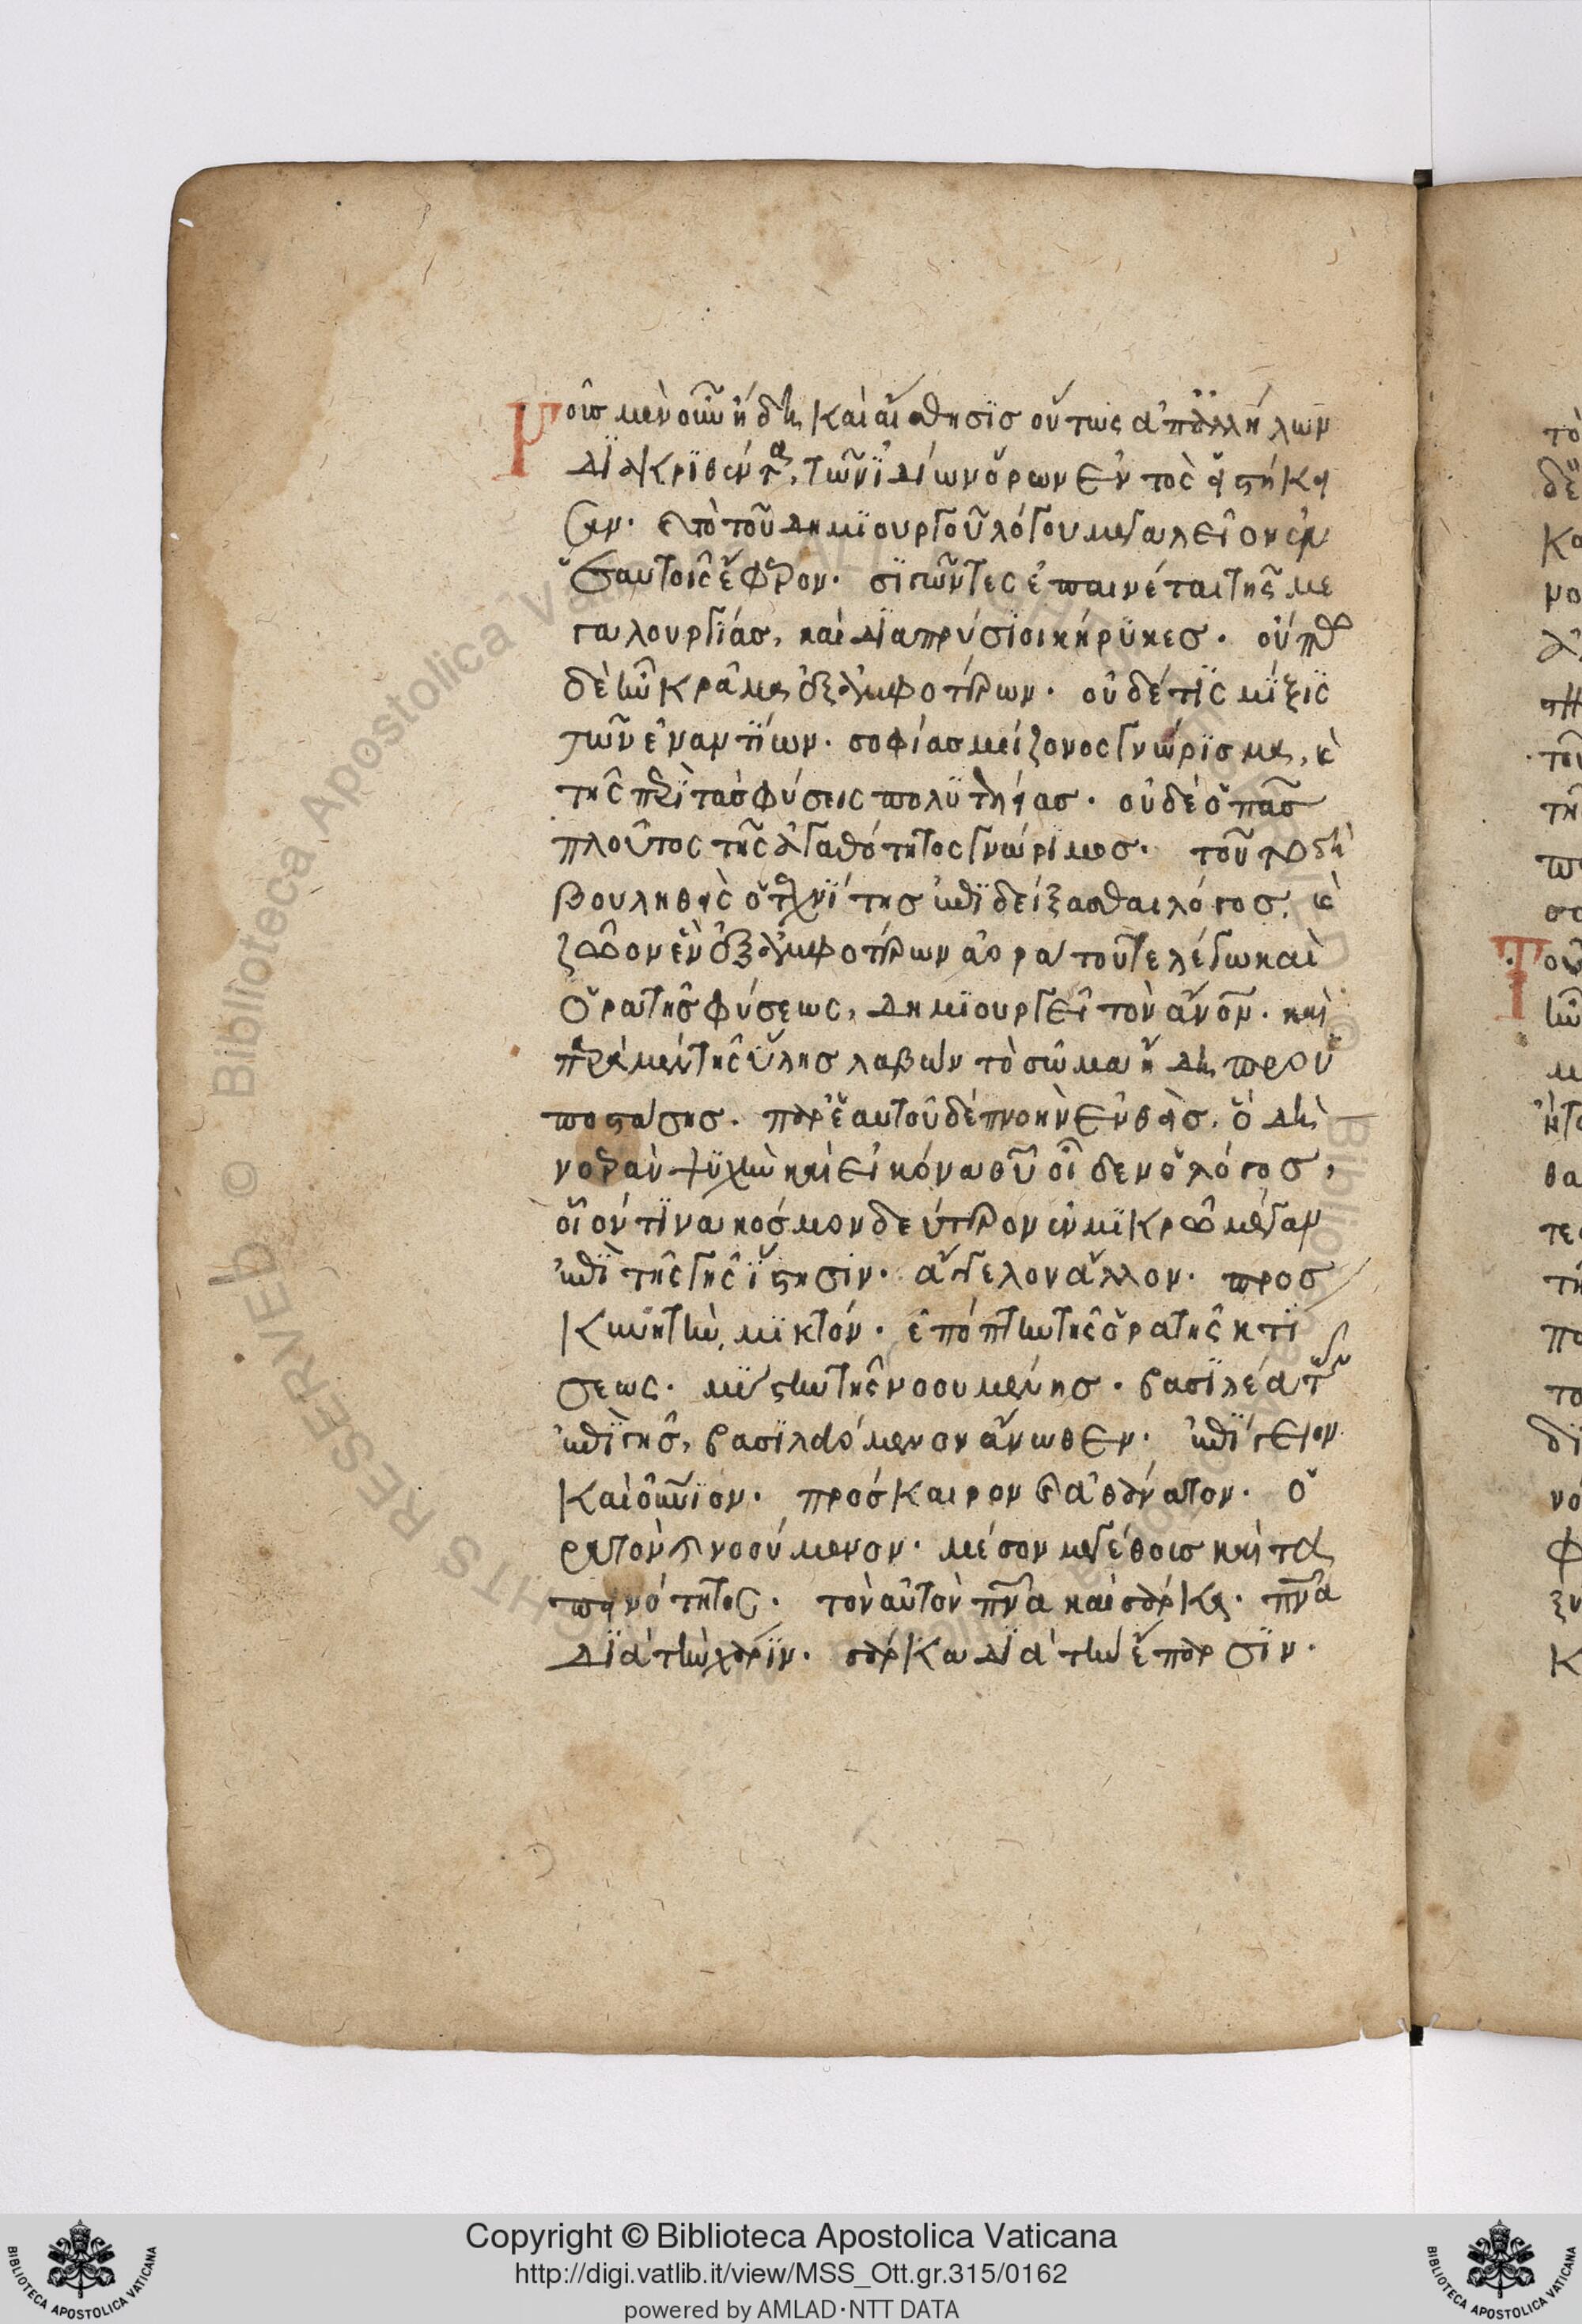 Νοῦσ μὲν οὖν ἤδη καὶ αἴσθησισ οὕτως ἀπαλλήλων
διακριθέντα, τῶν ἰδίων ὅρων ἐντὸς εἰστήκει
σαν. καὶ τὸ τοῦ δημιουργοῦ λόγου μεγαλεῖον ἐν
ἑαυτοῖς ἔφερον. σιγῶντες ἐπαινέται τῆς με
γαλουργίασ, καὶ διαπρύσιοι κήρυκεσ. οὔπω
δὲ ἦν κρᾶμα ἐξ ἀμφοτέρων. οὐδέ τις μίξις
τῶν ἐναντίων. σοφίασ μείζονος γνώρισμα, κὶ
τῆς περὶ τὰσ φύσεις πολυτελείασ. οὐδὲ ὁ πᾶσ
πλοῦτος τῆς ἀγαθότητος γνώριμοσ. τοῦτο δὴ
βουληθεὶς ὁ τεχνίτησ ἐπιδείξασθαι λόγοσ, κὶ
ζῶον ἓν ἐξ ἀμφοτέρων ἀοράτου τε λέγω καὶ
ὁρατῆσ φύσεως, δημιουργεῖ τὸν ἄνον. καὶ
παρὰ μὲν τῆς ὕλησ λαβὼν τὸ σῶμα ἤδη προϋ
ποστάσησ. παρ ἑαυτοῦ δὲ πνοὴν ἐνθεὶσ, ὃ δὴ
νοερὰν ψυχὴν καὶ εἰκόνα θῦ οἶδεν ὁ λόγοσ,
οἷόν τινα κόσμον δεύτερον ἐν μικρῷ μέγαν
ἐπὶ τῆς γῆς ἵστησιν. ἄγγελον ἄλλον. προσ
κυνητὴν μικτόν. ἐπόπτην τῆς ὁρατῆς κτί
σεως. μύστην τῆς νοουμένησ. βασιλέα τῶν
ἐπὶ γῆσ, βασιλευόμενον ἄνωθεν. ἐπίγειον
καὶ οὐνιον. πρόσκαιρον καὶ ἀθάνατον. ὁ
ρατὸν καὶ νοούμενον. μέσον μεγέθουσ καὶ τα
πεινότητος. τὸν αὐτὸν πνᾶ καὶ σάρκα. πνᾶ
διὰ τὴν χάριν. σάρκα διὰ τὴν ἔπαρσιν.
Copyright © Biblioteca Apostolica Vaticana
http://digi.vatlib.it/view/MSS_Ott.gr.315/0162
powered by AMLAD·NTT DATA